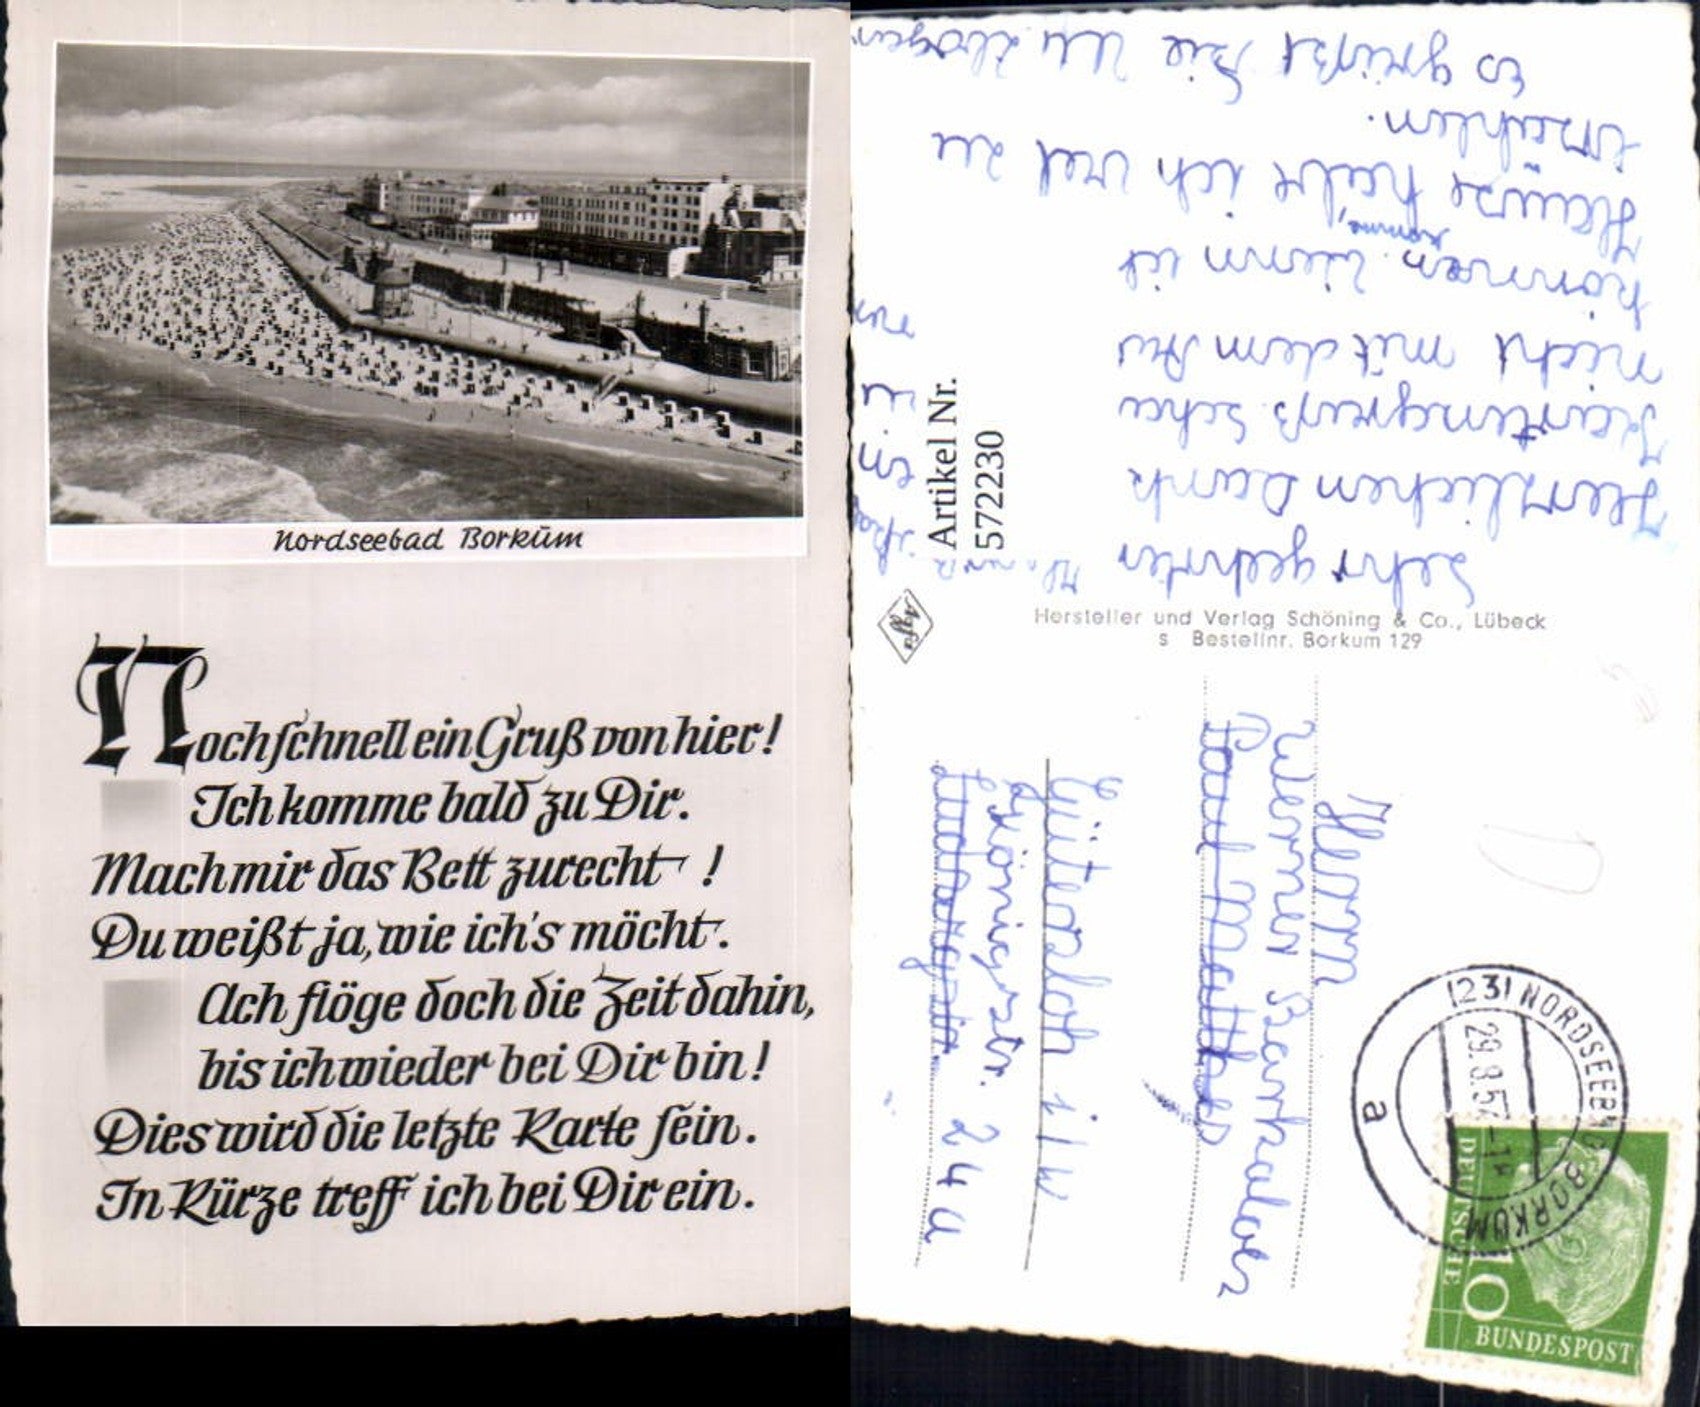 Nordseebad Borkum
Noch schnell ein Gruß von hier!
Ich komme bald zu Dir.
Mach mir das Bett zurecht!
Du weißt ja, wie ich's möcht.
Ach flöge doch die Zeit dahin,
bis ich wieder bei Dir bin!
Dies wird die letzte Karte sein.
In Kürze treff ich bei Dir ein.
Sehr geehrter
Herzlichen Dank
Kartengruß
nicht mit dem
können. Wenn ich
komme,
Hause habe ich viel zu
Erzählen.
Es grüßt Sie
Artikel Nr.
572230
Agfa
Hersteller und Verlag Schöning & Co., Lübeck
s Bestellnr. Borkum 129
Herrn
Werner
Paul
Gütersloh i/W
Königstr.
24a
(23) NORDSEEBAD BORKUM
29.8.57
a
DEUTSCHE
BUNDESPOST
10